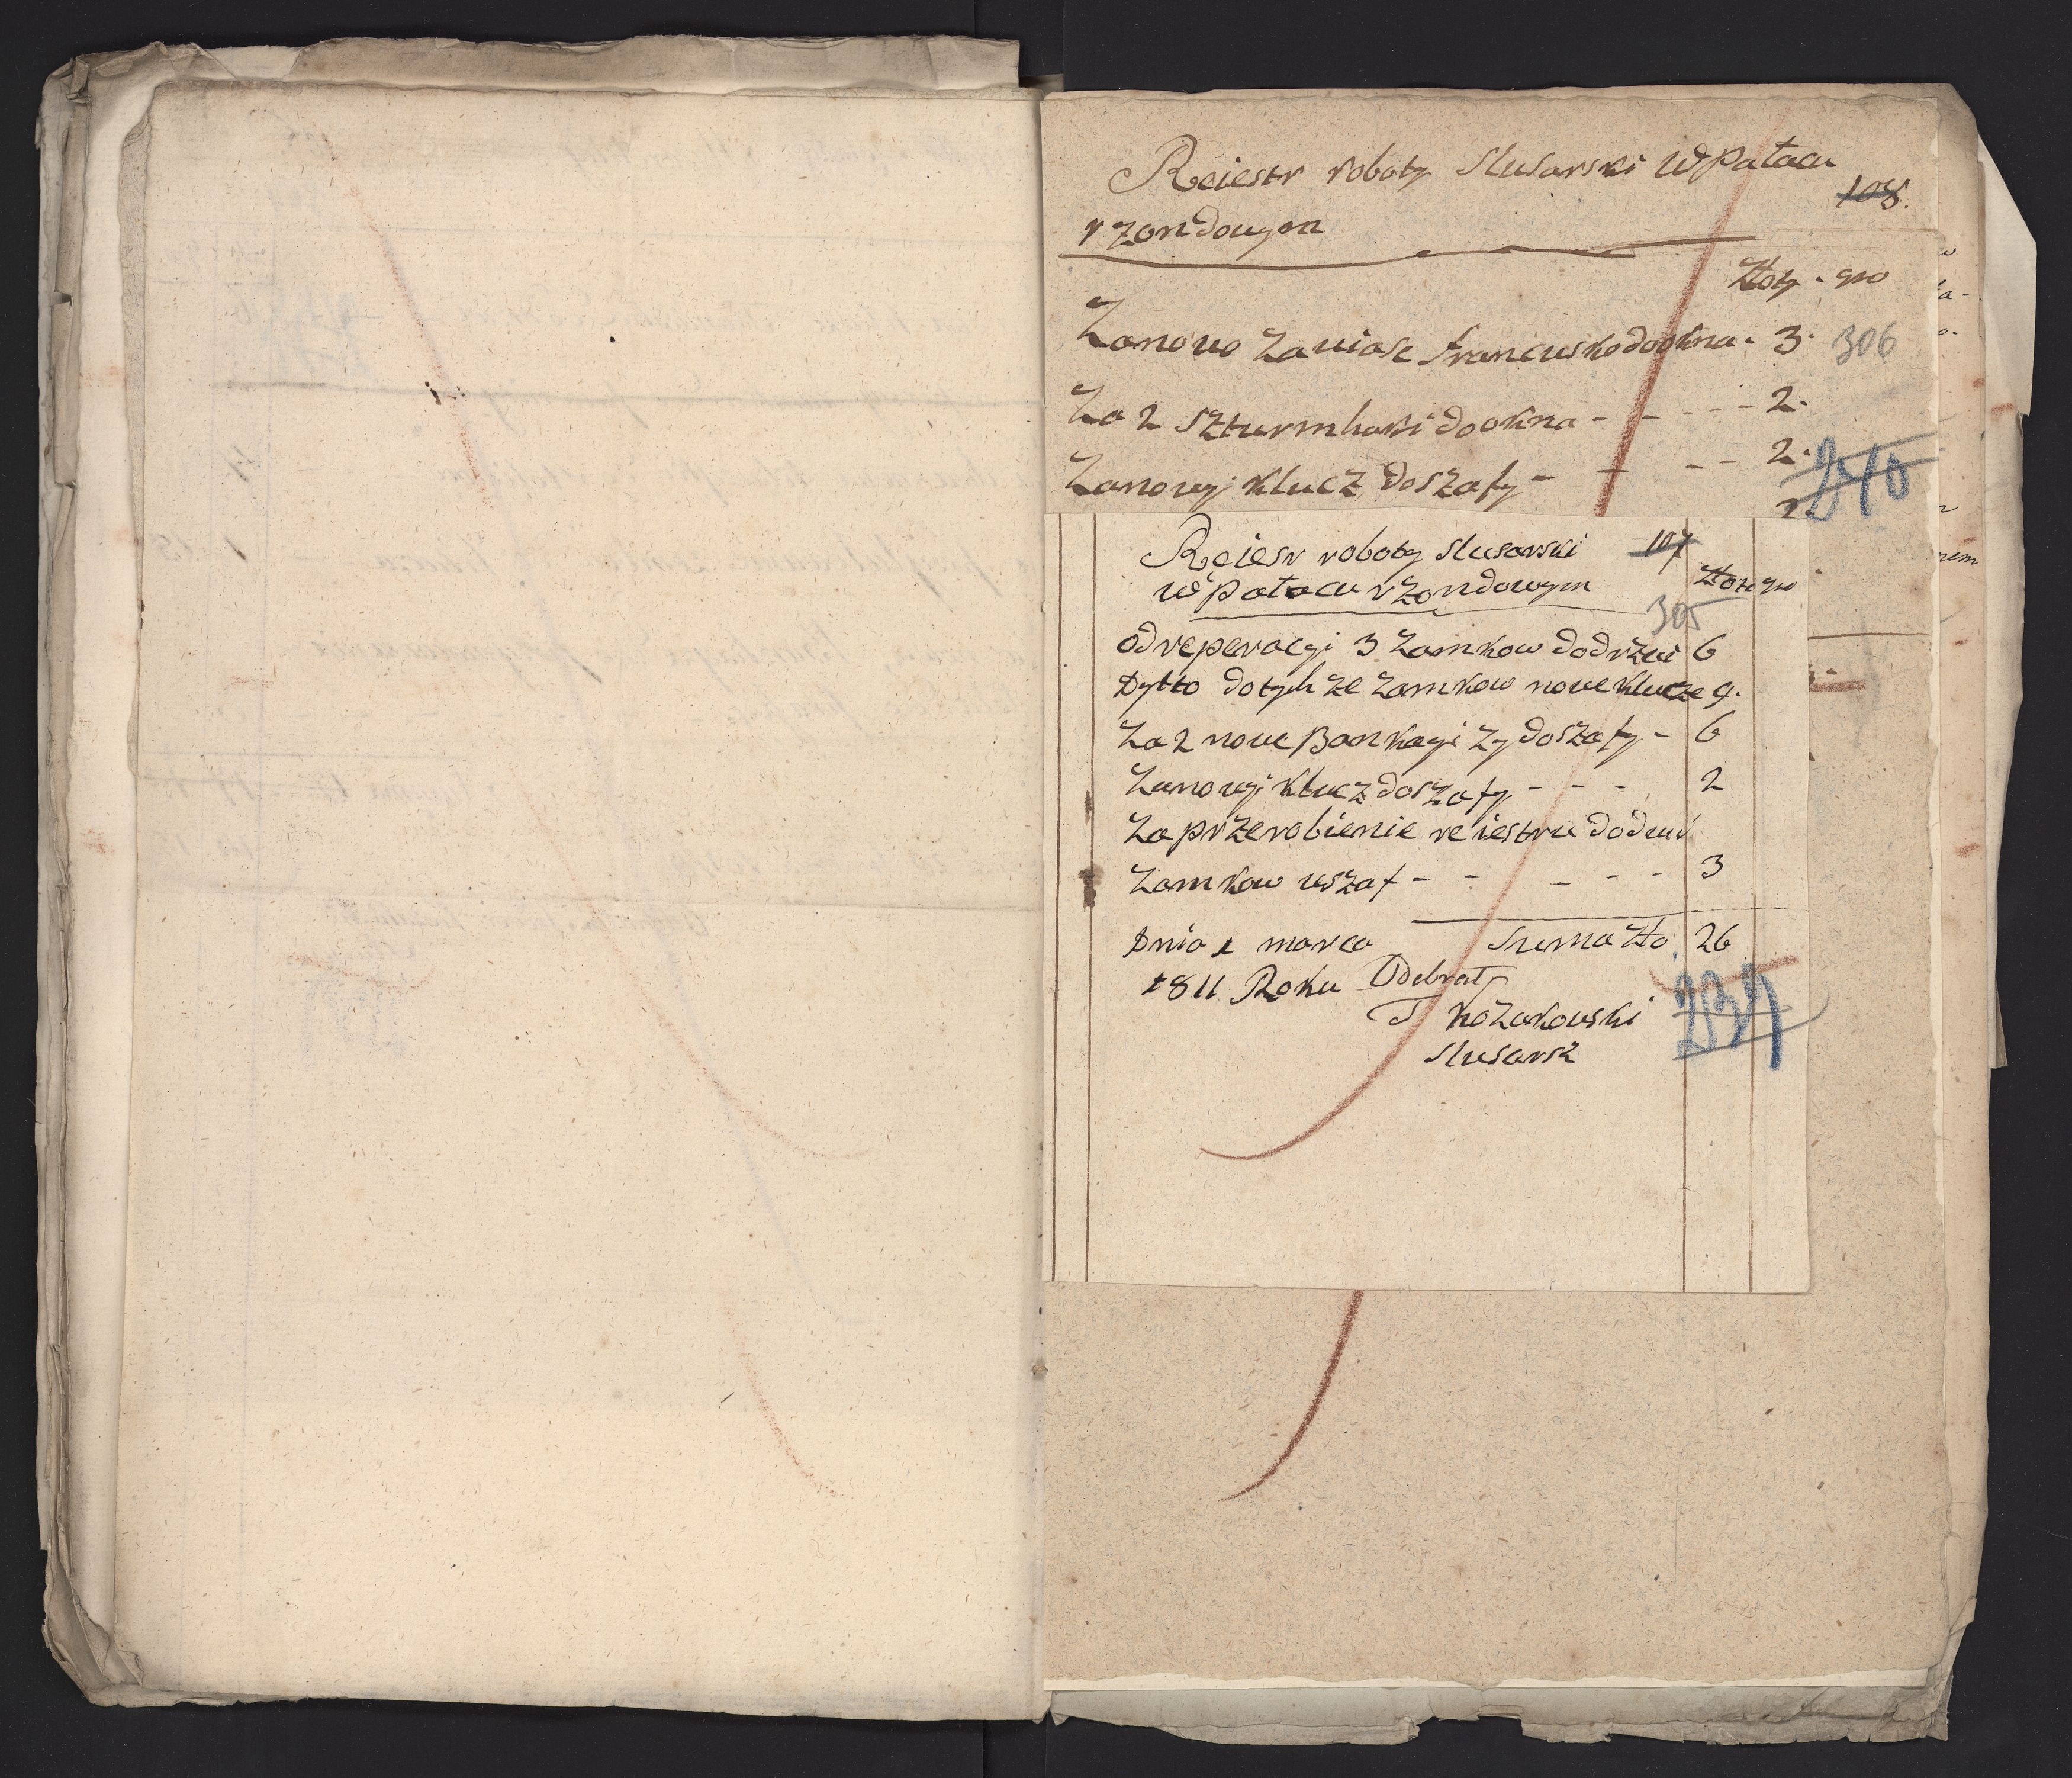 Reiestr roboty slusarski w Pałacu
108.
rzondowym
Złoty. gro
Zanowo zawiase francusko do okna. 3.
306
Za 2 szturmhaki do okna - - - - 2.
Zanowyj klucz do szafy - - - - 2.
240
Reiesr roboty slusarski
107
w pałacu rzondowym
Złote gro
305
od reperacyi 3 zamkow do drzwi 6
Dytto do tych ze zamkow nowe klucze 9.
Za 2 nowe Bankayi zy do szafy - 6
Zanowyj klucz do szafy - - - 2
Za przerobienie reiestru do
zamkow u szaf - - - - - 3
Dnia 1 marca Suma Zło 26
1811 Roku Odebrał
237
J Kozakowski
slusarz